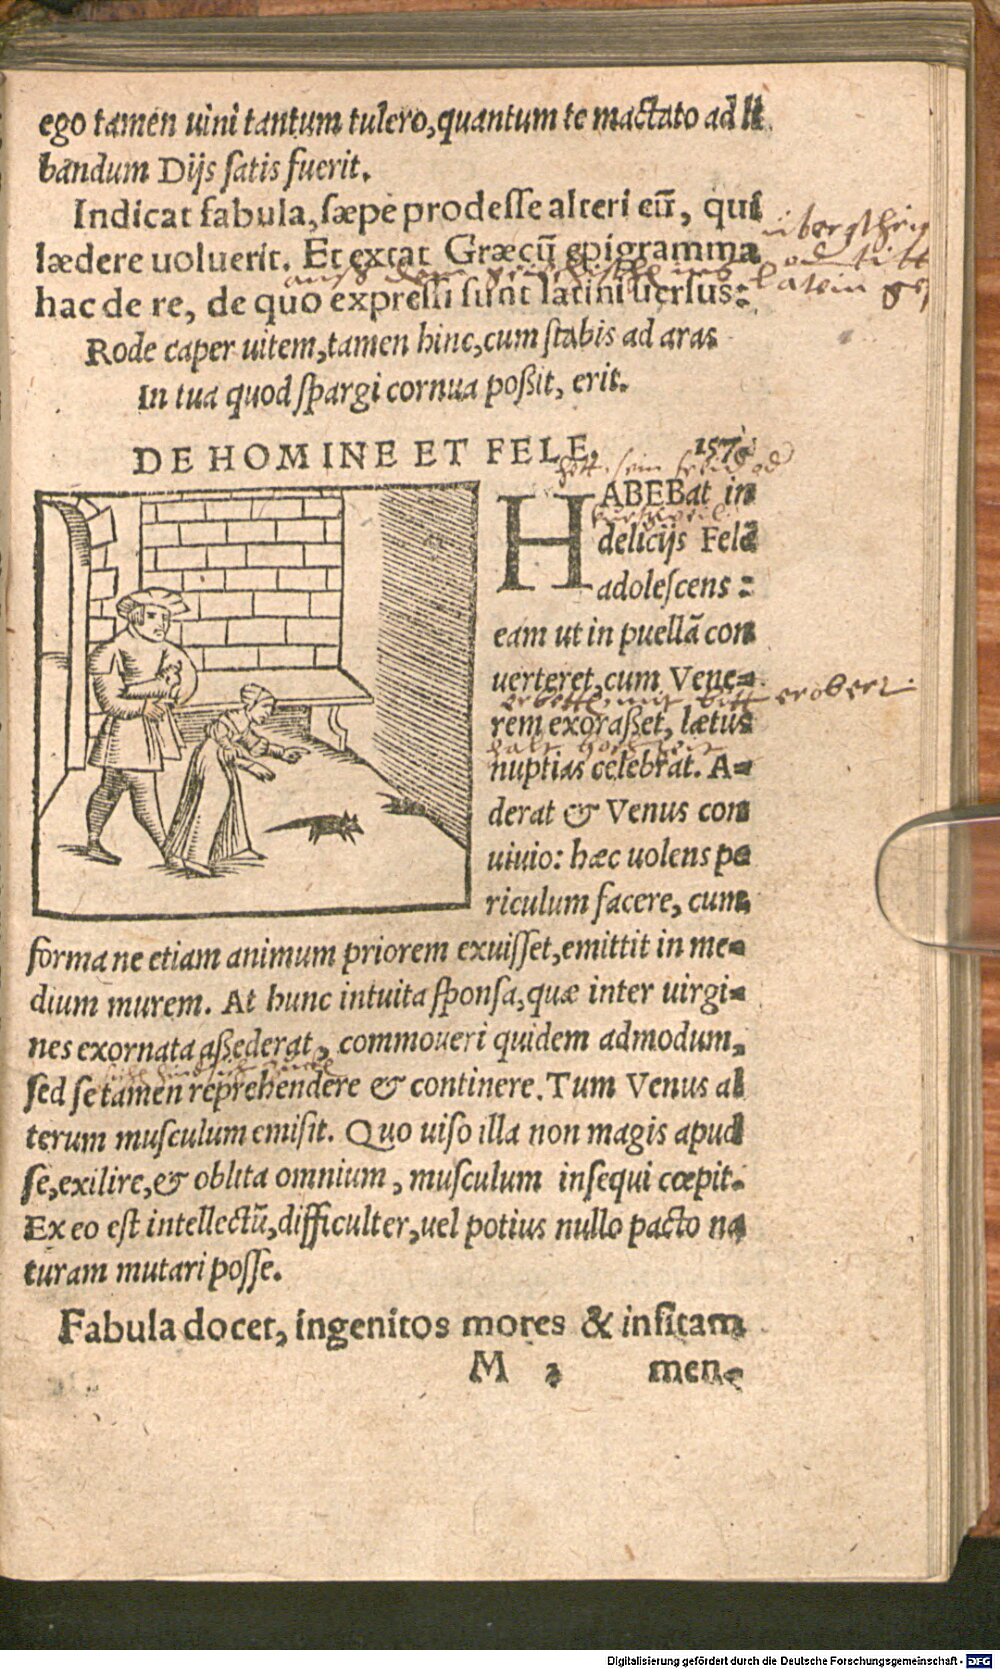 ego tamen uini tantum tulero, quantum te mactato ad li
bandum Dijs satis fuerit.
Indicat fabula, sæpe prodesse alteri eũ, qui
lædere uoluerit. Et extat Græcũ epigramma
hac de re, de quo expressi sunt latini uersus:
Rode caper uitem, tamen hinc, cum stabis ad aras
In tua quod spargi cornua poßit, erit.
DE HOMINE ET FELE. 157
HABEBat in
delicijs Felẽ
adolescens:
eam ut in puellã con
uerteret, cum Vene=
rem exoraßet, lætus
nuptias celebrat. A=
derat & Venus con
uiuio: hæc uolens pe
riculum facere, cum
forma ne etiam animum priorem exuisset, emittit in me=
dium murem. At hunc intuita sponsa, quæ inter uirgi=
nes exornata aßederat, commoueri quidem admodum,
sed se tamen reprehendere & continere. Tum Venus al
terum musculum emisit. Quo uiso illa non magis apud
se, exilire, & oblita omnium, musculum insequi cœpit.
Ex eo est intellectũ, difficulter, uel potius nullo pacto na
turam mutari posse.
Fabula docet, ingenitos mores & insitam
M 2 men=
Digitalisierung gefördert durch die Deutsche Forschungsgemeinschaft - DFG